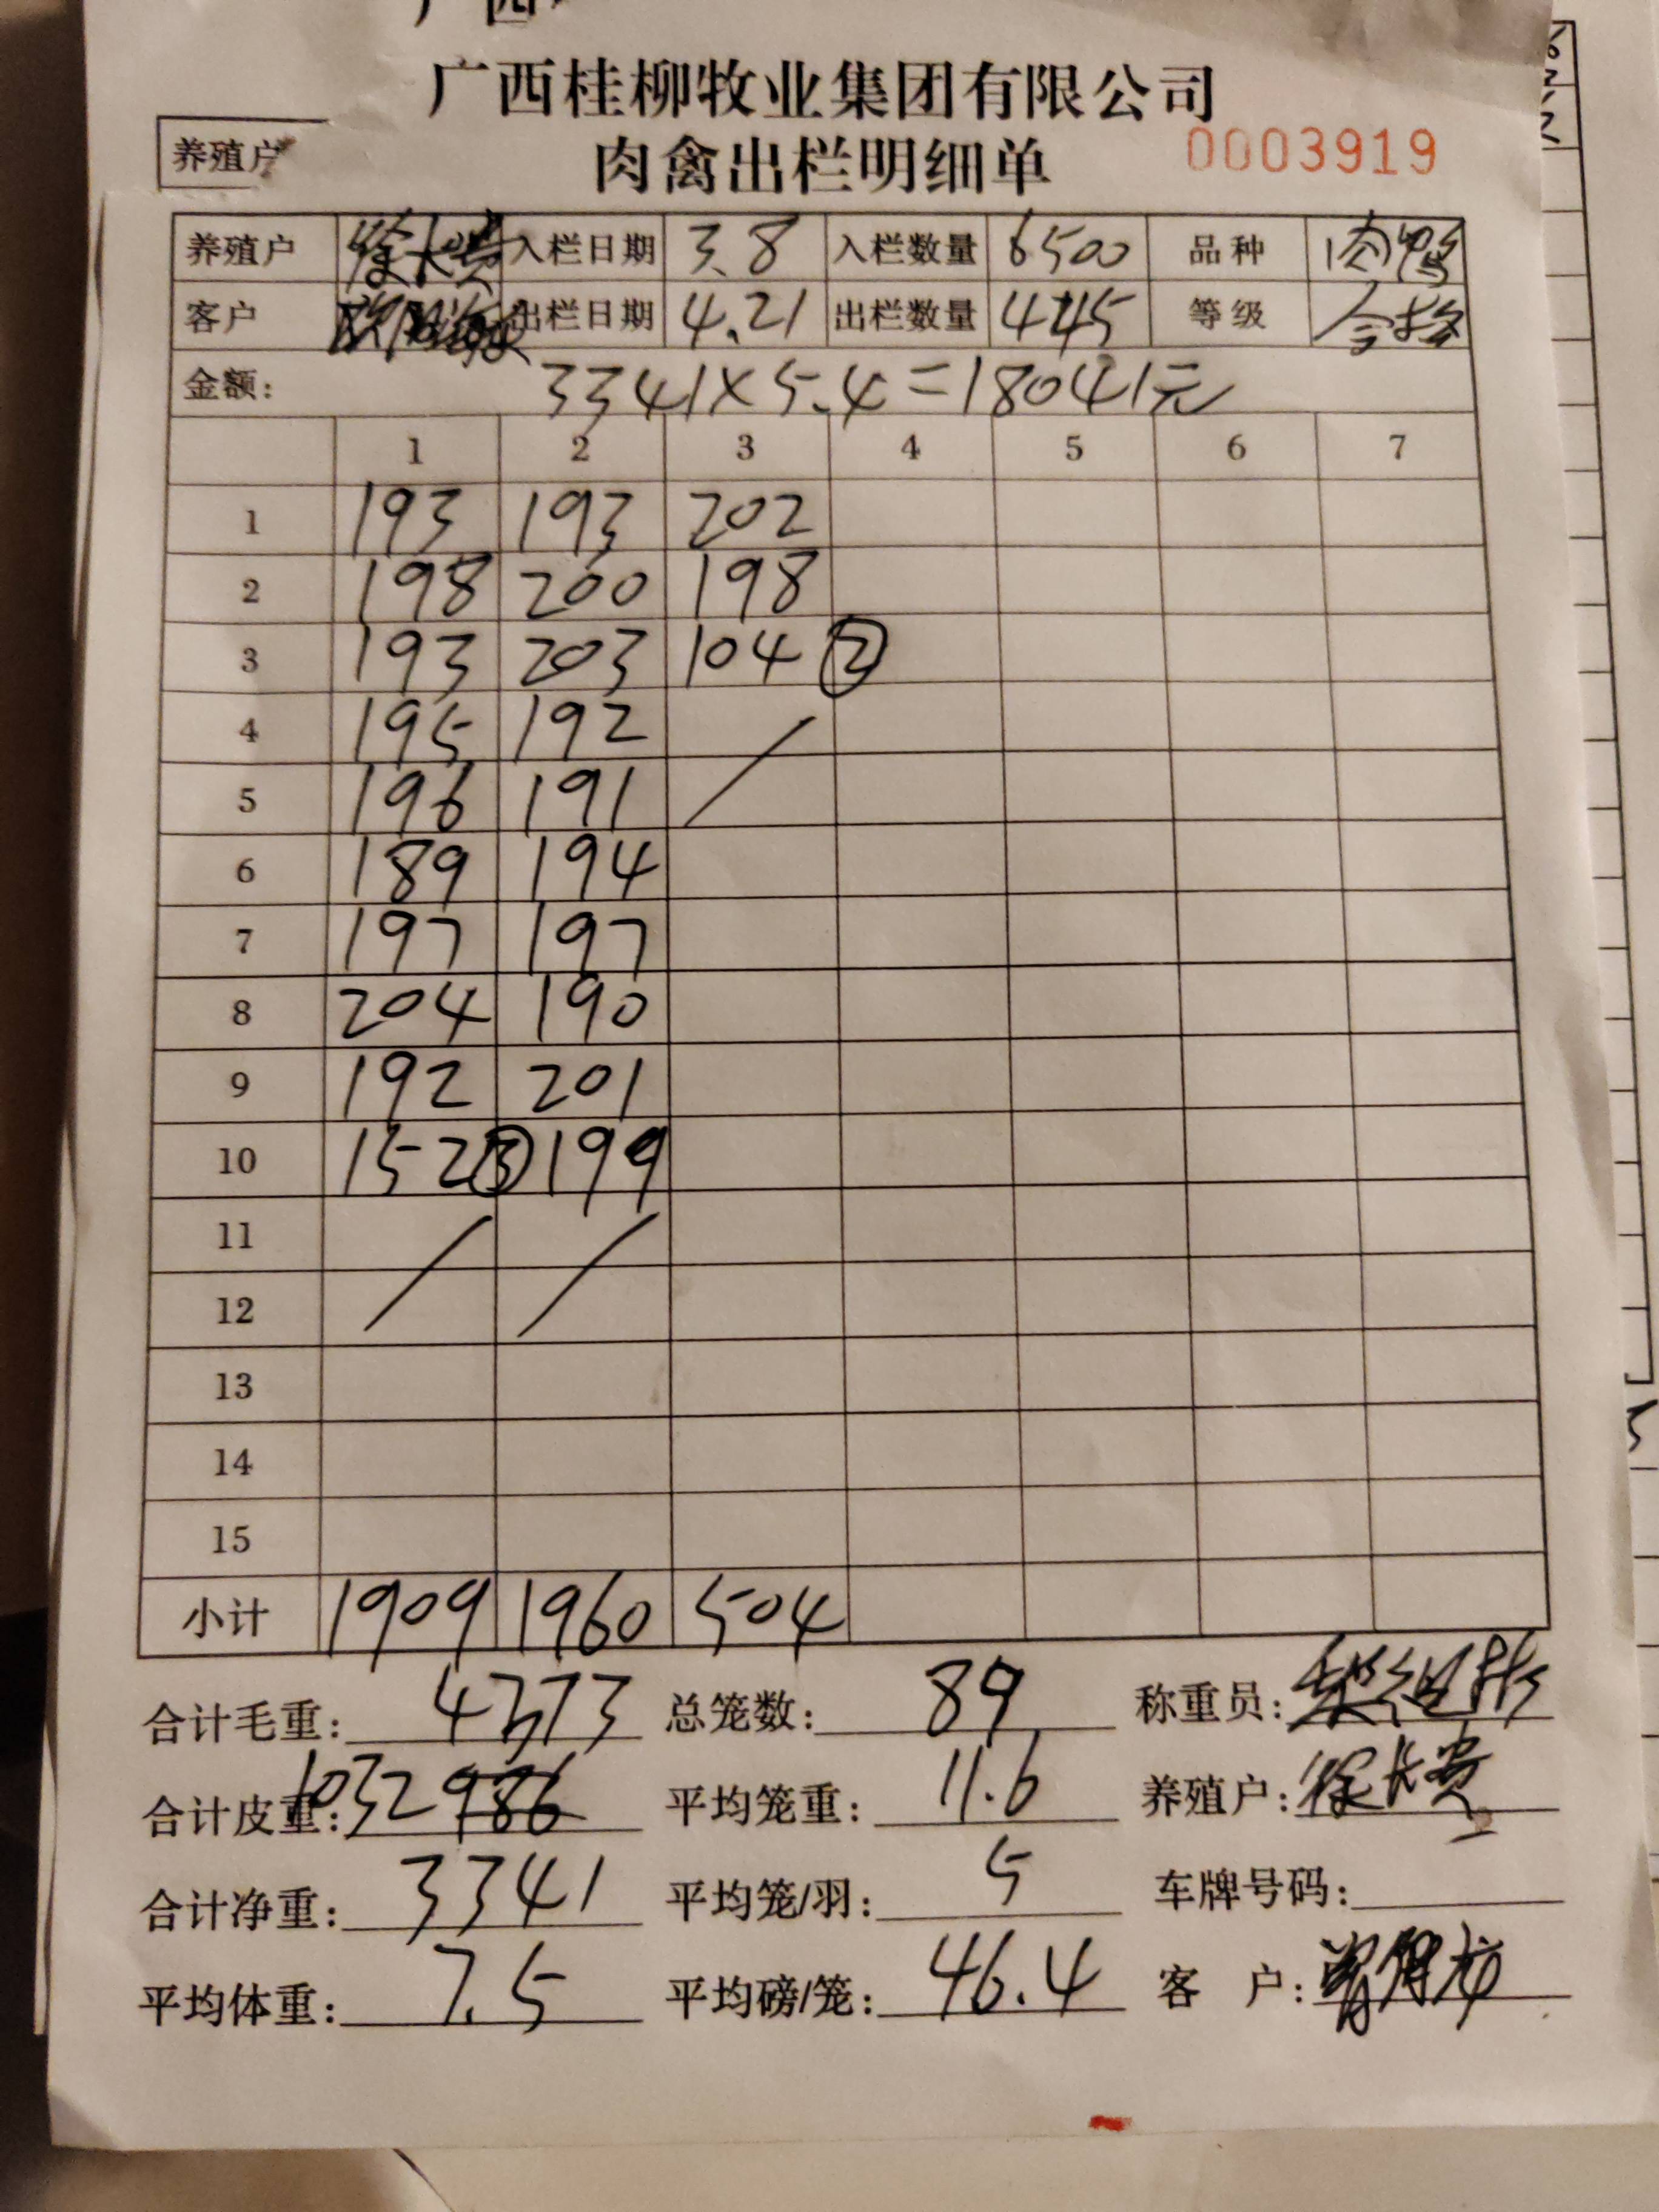 广西
广西桂柳牧业集团有限公司
养殖户
肉禽出栏明细单 0003919
养殖户 徐长贵 入栏日期 3.8 入栏数量 6500 品种 肉鸭
客户 出栏日期 4.21 出栏数量 445 等级 合格
金额: 3341×5.4=18041元
1 2 3 4 5 6 7
1 193 193 202
2 198 200 198
3 193 203 104 ②
4 195 192
5 196 191
6 189 194
7 197 197
8 204 190
9 192 201
10 152 ③ 199
11
12
13
14
15
小计 1909 1960 504
合计毛重: 4373 总笼数: 89 称重员:
合计皮重: 1032 986 平均笼重: 11.6 养殖户: 徐长贵
合计净重: 3341 平均笼/羽: 5 车牌号码:
平均体重: 7.5 平均磅/笼: 46.4 客户: